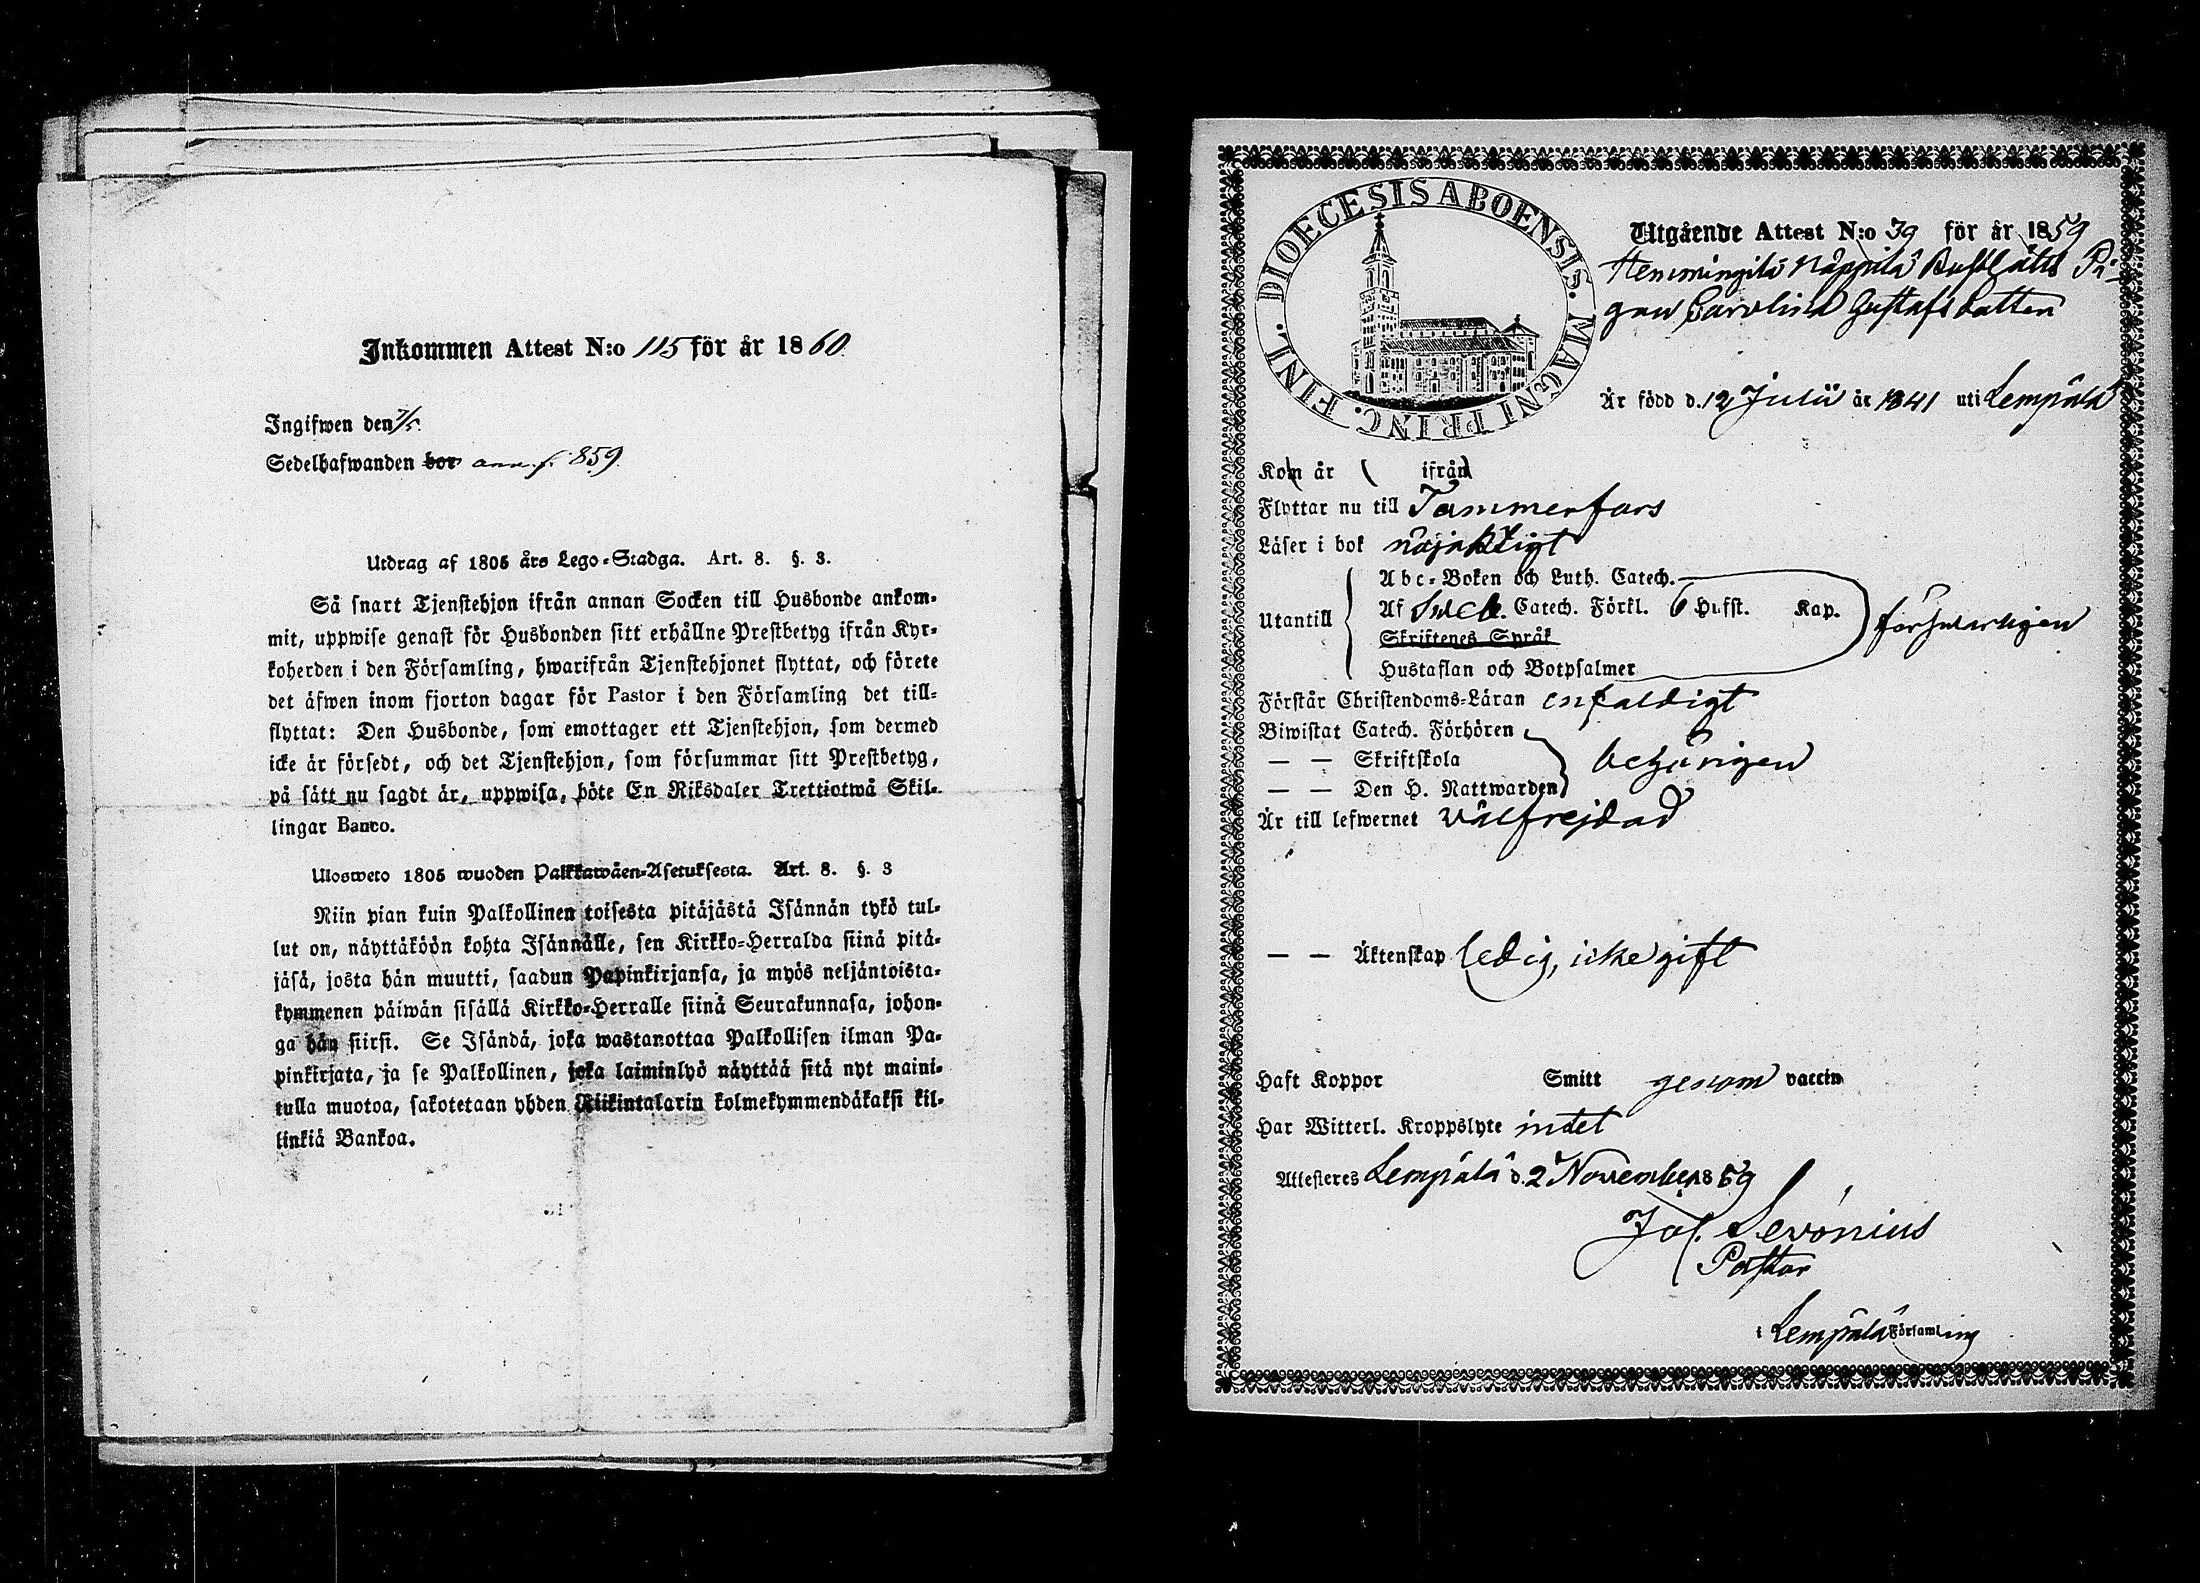 Inkommen Attest N:o 115 för år 1860
Ingifwen den 7/5.
Sedelhafwanden bor ann. f. 859.
Utdrag af 1805 års Lego-Stadga. Art. 8. §. 3.
Så snart Tjenstehjon ifrån annan Socken till Husbonde ankom-
mit, uppwise genast för Husbonden sitt erhållne Prestbetyg ifrån Kyr-
koherden i den Församling, hwarifrån Tjenstehjonet flyttat, och förete
det äfwen inom fjorton dagar för Pastor i den Församling det till-
flyttat: Den Husbonde, som emottager ett Tjenstehjon, som dermed
icke är försedt, och det Tjenstehjon, som försummar sitt Prestbetyg,
på sätt nu sagdt är, uppwisa, böte En Riksdaler Trettiotwå Skil-
lingar Banco.
Ulosweto 1805 wuoden Palkkawäen-Asetuksesta. Art. 8. §. 3
Niin pian kuin Palkollinen toisesta pitäjästä Isännän tykö tul-
lut on, näyttäköön kohta Isännälle, sen Kirkko-Herralda siinä pitä-
jäsä, josta hän muutti, saadun Papinkirjansa, ja myös neljäntoista-
kymmenen päiwän sisällä Kirkko-Herralle siinä Seurakunnasa, johon-
ga hän siirsi. Se Isändä, joka wastanottaa Palkollisen ilman Pa-
pinkirjata, ja se Palkollinen, joka laiminlyö näyttää sitä nyt maini-
tulla muotoa, sakotetaan yhden Riikintalarin kolmekymmendäkaksi kil-
linkiä Bankoa.
DIOECESIS ABOENSIS. MAGNI PRINC. FINL.
Utgående Attest N:o 39 för år 1859
Hemmingilä Näppilä Pi-
gan Carolina Gustafsdatten
Är född d. 12 Julii år 1841 uti Lempälä
Kom år ifrån
Flyttar nu till Tammerfors
Läser i bok nöjaktigt
Abc-Boken och Luth. Catech.
Utantill Af Sweb. Catech. Förkl. 6 Hufst. Kap. försvarligen
Skriftenes Språk
Hustaflan och Botpsalmer
Förstår Christendoms-Läran enfaldigt
Biwistat Catech. Förhören
— — Skriftskola behörigen
— — Den H. Nattwarden
Är till lefwernet välfrejdad
— — Äktenskap ledig, icke gift
Haft Koppor Smitt genom vaccin
Har Witterl. Kroppslyte intet
Attesteres Lempälä d. 2 November 1859
Jos. Sevonius
Pastor
i Lempälä Församling